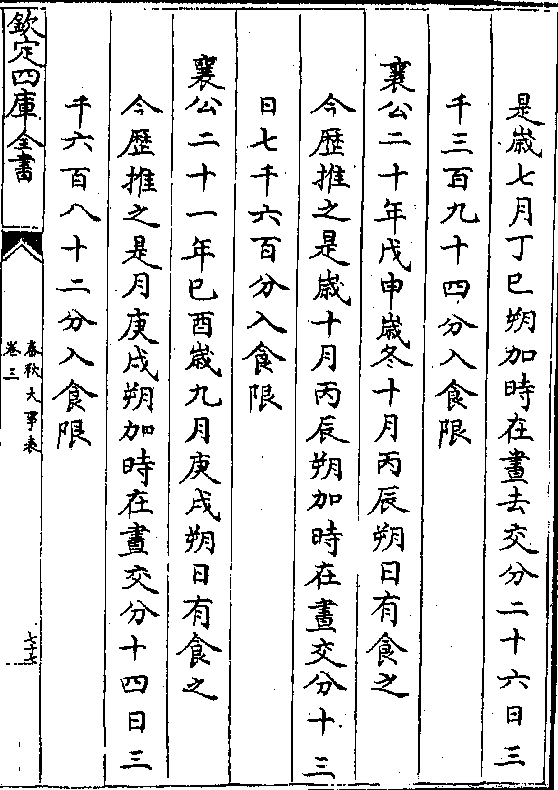 是歲七月丁巳朔加時在晝去交分二十六日三
千三百九十四分入食限
襄公二十年戊申歲冬十月丙辰朔日有食之
今歷推之是歲十月丙辰朔加時在晝交分十三
日七千六百分入食限
襄公二十一年巳酉歲九月庚戌朔日有食之
今歷推之是月庚戌朔加時在晝交分十四日三
千六百八十二分入食限
欽定四庫全書
春秋大事表
卷三
七十七